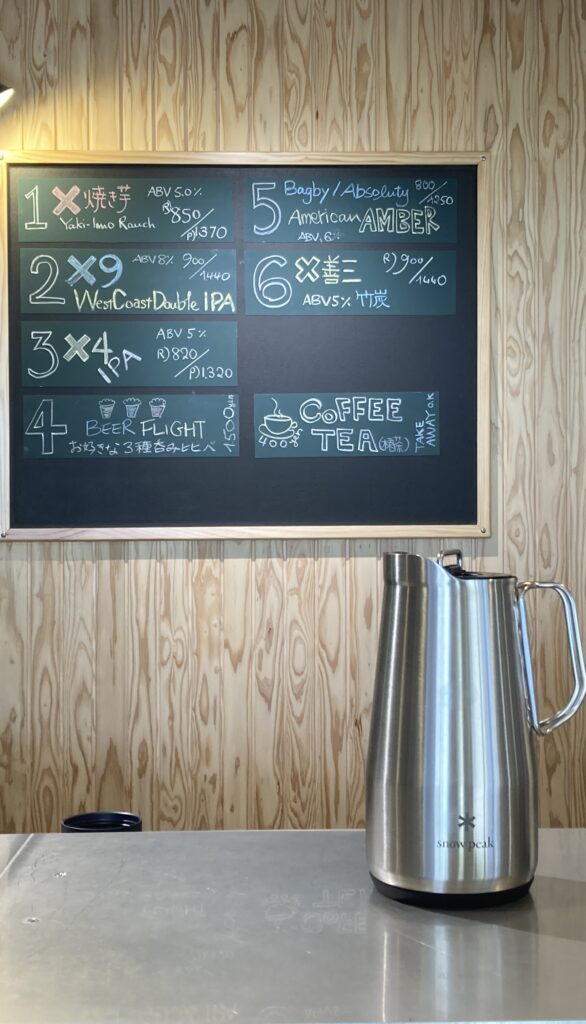 1 ×焼き芋 ABV 5.0%
Yaki-Imo Ranch R)850/P)1370
2 ×9 ABV 8% 900/1440
West Coast Double IPA
3 ×4 IPA ABV 5%
R)820/P)1,320
4 BEER FLIGHT 1500yen
お好きな3種呑み比べ
5 Bagby/Absoluty 800/1250
American AMBER
ABV, 6%
6 ×善三 R)900/1440
ABV 5% 竹炭
COFFEE
400yen TEA TAKE AWAY O.K
snow peak